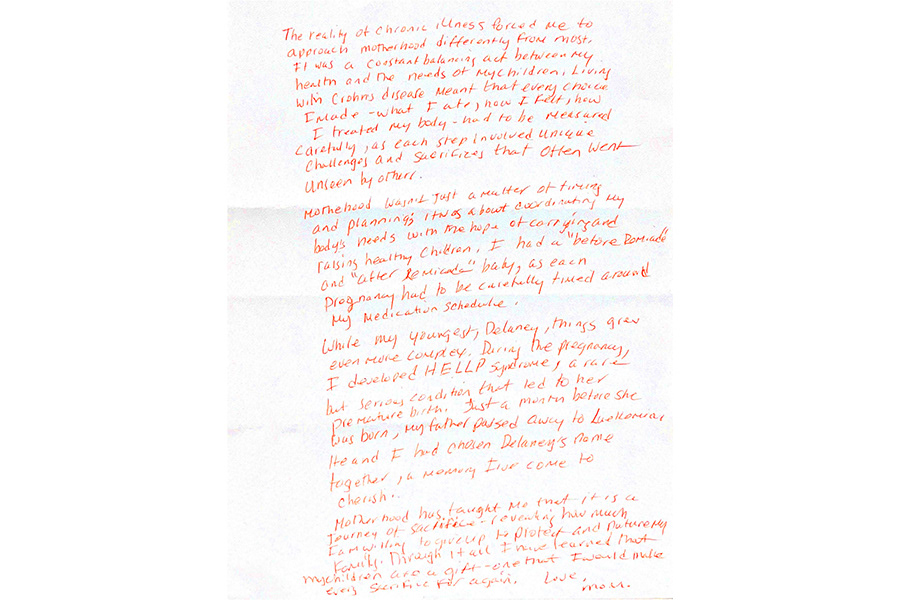 The reality of chronic illness forced me to
approach motherhood differently from most.
It was a constant balancing act between my
health and the needs of my children. Living
with Crohns disease meant that every choice
I made - what I ate, how I felt, how
I treated my body - had to be measured
carefully, as each step involved unique
challenges and sacrifices that often went
unseen by others.
Motherhood wasn't just a matter of timing
and planning; it was about coordinating my
body's needs with the hope of carrying and
raising healthy children. I had a "before Remicade"
and "after Remicade" baby, as each
pregnancy had to be carefully timed around
my medication schedule.
While my youngest, Delaney, things grew
even more complex. During the pregnancy,
I developed HELLP syndrome, a rare
but serious condition that led to her
premature birth. Just a month before she
was born, my father passed away to Luekemia.
He and I had chosen Delaney's name
together, a memory I've come to
cherish..
Motherhood has taught me that it is a
journey of sacrifice - revealing how much
I am willing to give up to protect and nuture my
family. Through it all I have learned that
my children are a gift - one that I would make
every sacrifice for again. Love,
mom.